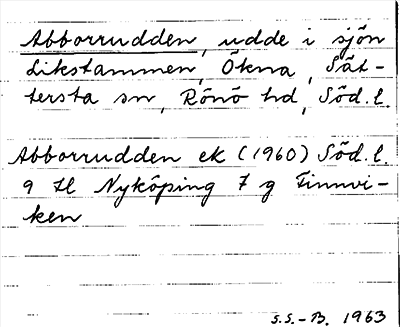 Abborrudden, udde i sjön
Likstammen, Ökna, Sät-
tersta sn, Rönö hd, Söd. l.
Abborrudden ek (1960) Söd. l.
9 H Nyköping 7 g Finnvi-
ken
S.S.-B. 1963